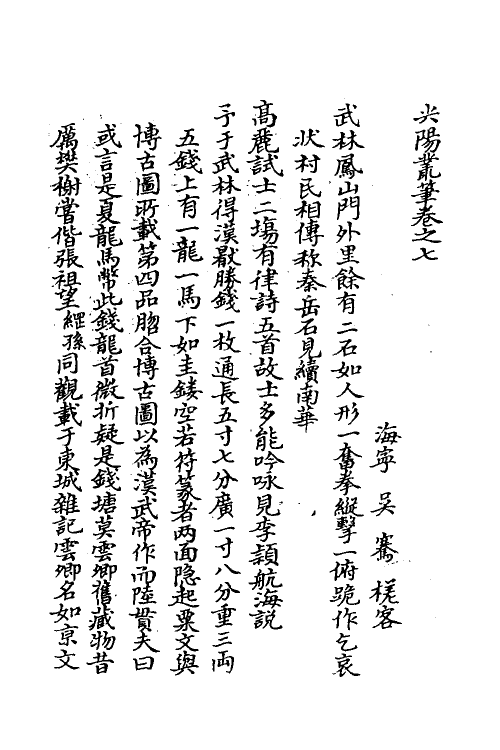 尖陽叢筆卷之七
海寧 吳 騫 槎客
武林鳳山門外里餘有二石如人形一奮拳縱擊一俯跪作乞哀
狀村民相傳秤秦岳石見續南華
高麗試士二塲有律詩五首故士多能吟咏見李頴航海説
予于武林得漢厭勝錢一枚通長五寸七分廣一寸八分重三兩
五錢上有一龍一馬下如圭鏤空若符篆者两面隐起粟文與
博古圖所載第四品脗合博古圖以為漢武帝作而陸貫夫曰
或言是夏龍馬幣此錢龍首微折疑是錢塘莫雲卿舊藏物昔
厲樊榭嘗偕張祖望經孫同觀載于東城雜記雲卿名如京文